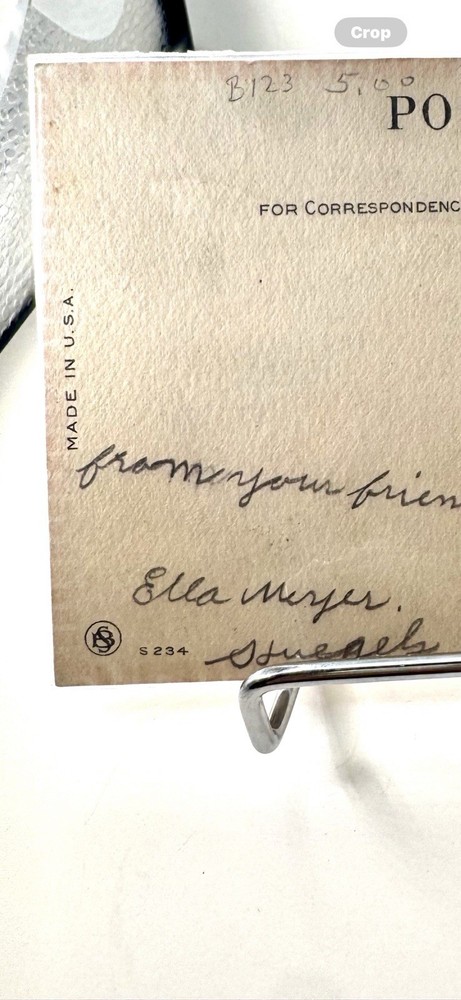 Crop
B123 5.00
PO
FOR CORRESPONDENC
MADE IN U.S.A.
from your frien
Ella Meyer.
S 234